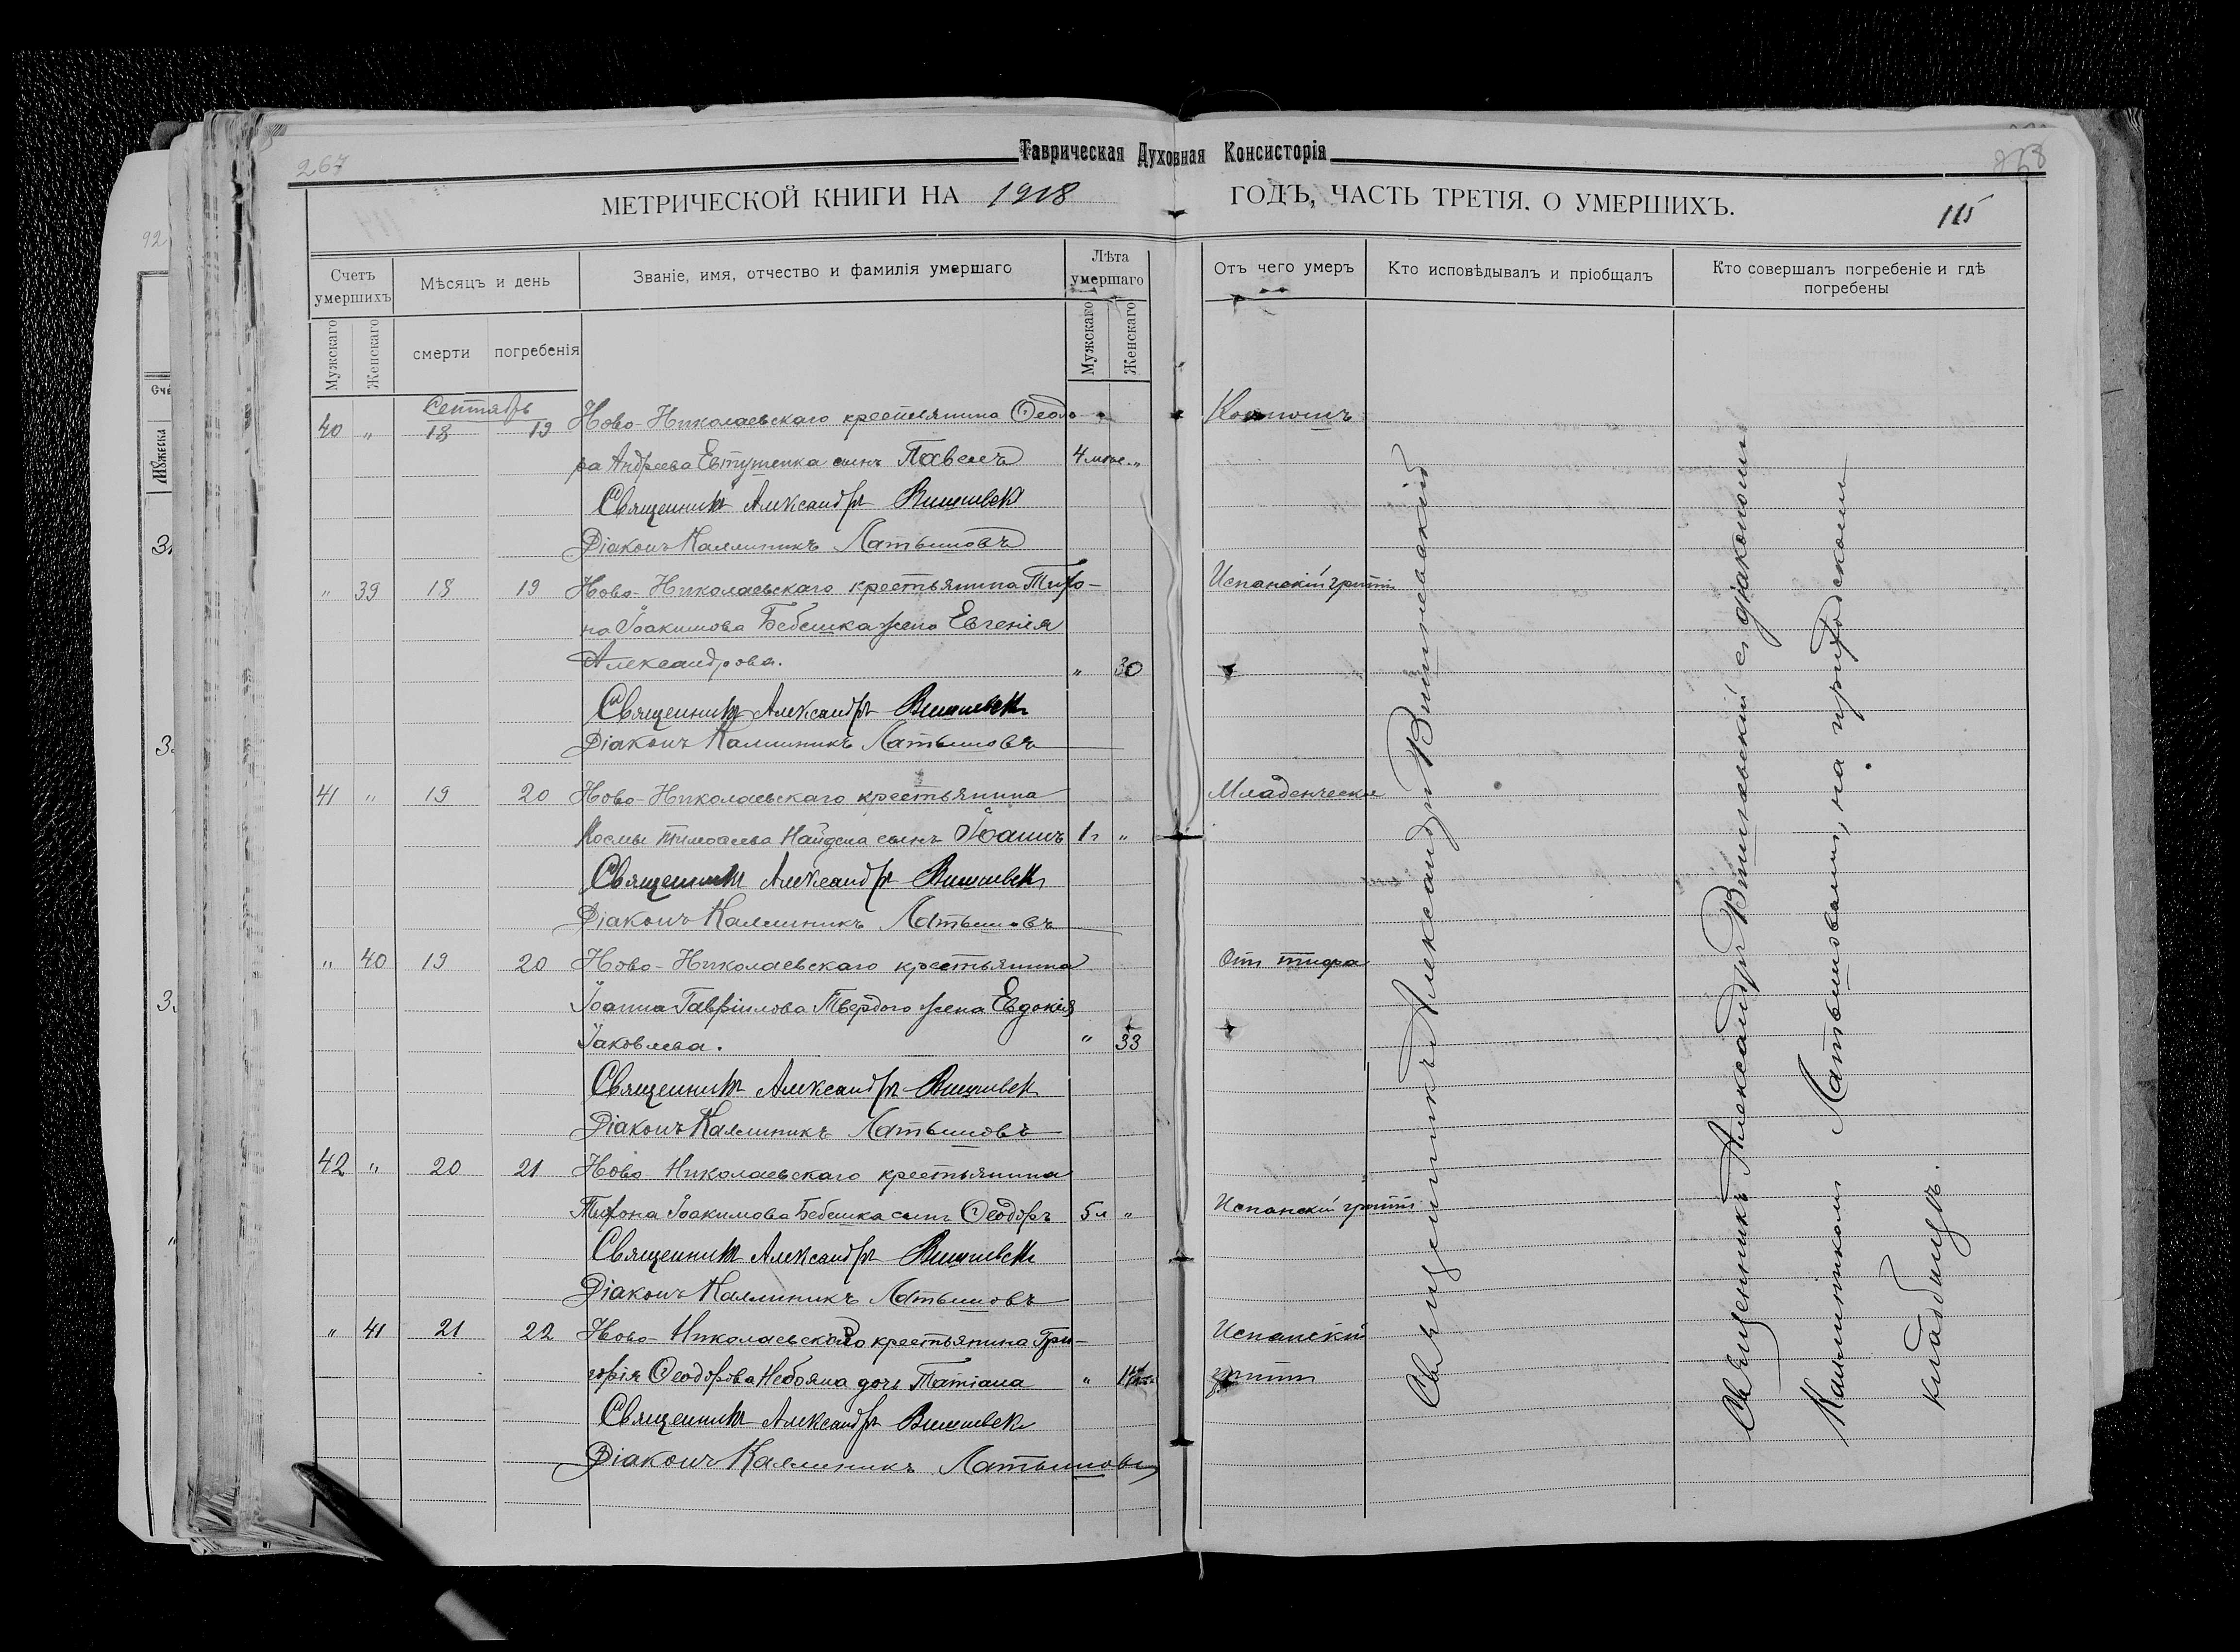 267
Таврическая Духовная Консисторія
МЕТРИЧЕСКОЙ КНИГИ НА 1918 ГОДЪ, ЧАСТЬ ТРЕТІЯ, О УМЕРШИХЪ.
115
Счетъ умершихъ
Мѣсяцъ и день
Званіе, имя, отчество и фамилія умершаго
Лѣта умершаго
Отъ чего умеръ
Кто исповѣдывалъ и пріобщалъ
Кто совершалъ погребеніе и гдѣ погребены
Мужскаго
Женскаго
смерти
погребенія
Мужскаго
Женскаго
Сентябрь
40 " 18 19 Ново-Николаевскаго крестьянина Ѳеодо-
ра Андреева Евтушенка сынъ Павелъ 4 мѣс. "
Священникъ Александръ Вишневск
Діаконъ Каллиникъ Латышовъ
" 39 18 19 Ново-Николаевскаго крестьянина Тихо- Испанскій гриппъ
на Іоакимова Бебешка жена Евгенія
Александрова. " 30
Священникъ Александръ Вишневск
Діаконъ Каллиникъ Латышовъ
41 " 19 20 Ново-Николаевскаго крестьянина Младенческ
Космы Тимоѳеева Найдена сынъ Іоаннъ 1 г "
Священникъ Александръ Вишневск
Діаконъ Каллиникъ Латышовъ
" 40 19 20 Ново-Николаевскаго крестьянина Отъ тифа
Іоанна Гавріилова Твердого жена Евдокія
Іаковлева. " 33
Священникъ Александръ Вишневск
Діаконъ Каллиникъ Латышовъ
42 " 20 21 Ново-Николаевскаго крестьянина
Тихона Іоакимова Бебешка сынъ Ѳеодоръ 5 л " Испанскій гриппъ
Священникъ Александръ Вишневск
Діаконъ Каллиникъ Латышовъ
" 41 21 22 Ново-Николаевскаго крестьянина Гри- Испанскій
горія Ѳеодорова Небояна дочь Татіана " гриппъ
Священникъ Александръ Вишневск
Діаконъ Каллиникъ Латышовъ
Священникъ Александръ Вишневскій
Священникъ Александръ Вишневскій съ діакономъ
Каллиникомъ Латышовымъ, на приходскомъ
кладбищѣ.